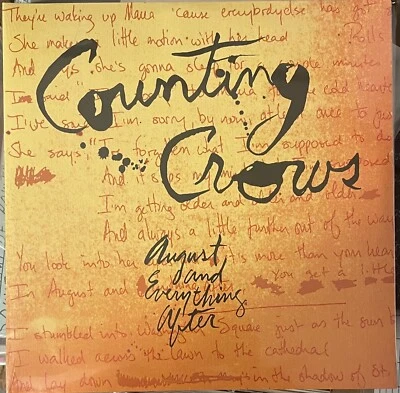 They're waking up Maria 'cause everybody else has got
She makes a little motion with her head Rolls
And says she's gonna sleep for a couple minutes
Counting
I said
I've said I'm sorry by now, at least once to
She says, "I've forgotten what I'm supposed to do
Crows
And it
I'm getting older and older and older
And always a little further out of the way
You look into her it's more than you
August
and
Everything
After
In August and You get a little
I stumbled into Washington Square just as the sun
I walked across the lawn to the cathedral
And lay down in the shadow of St.